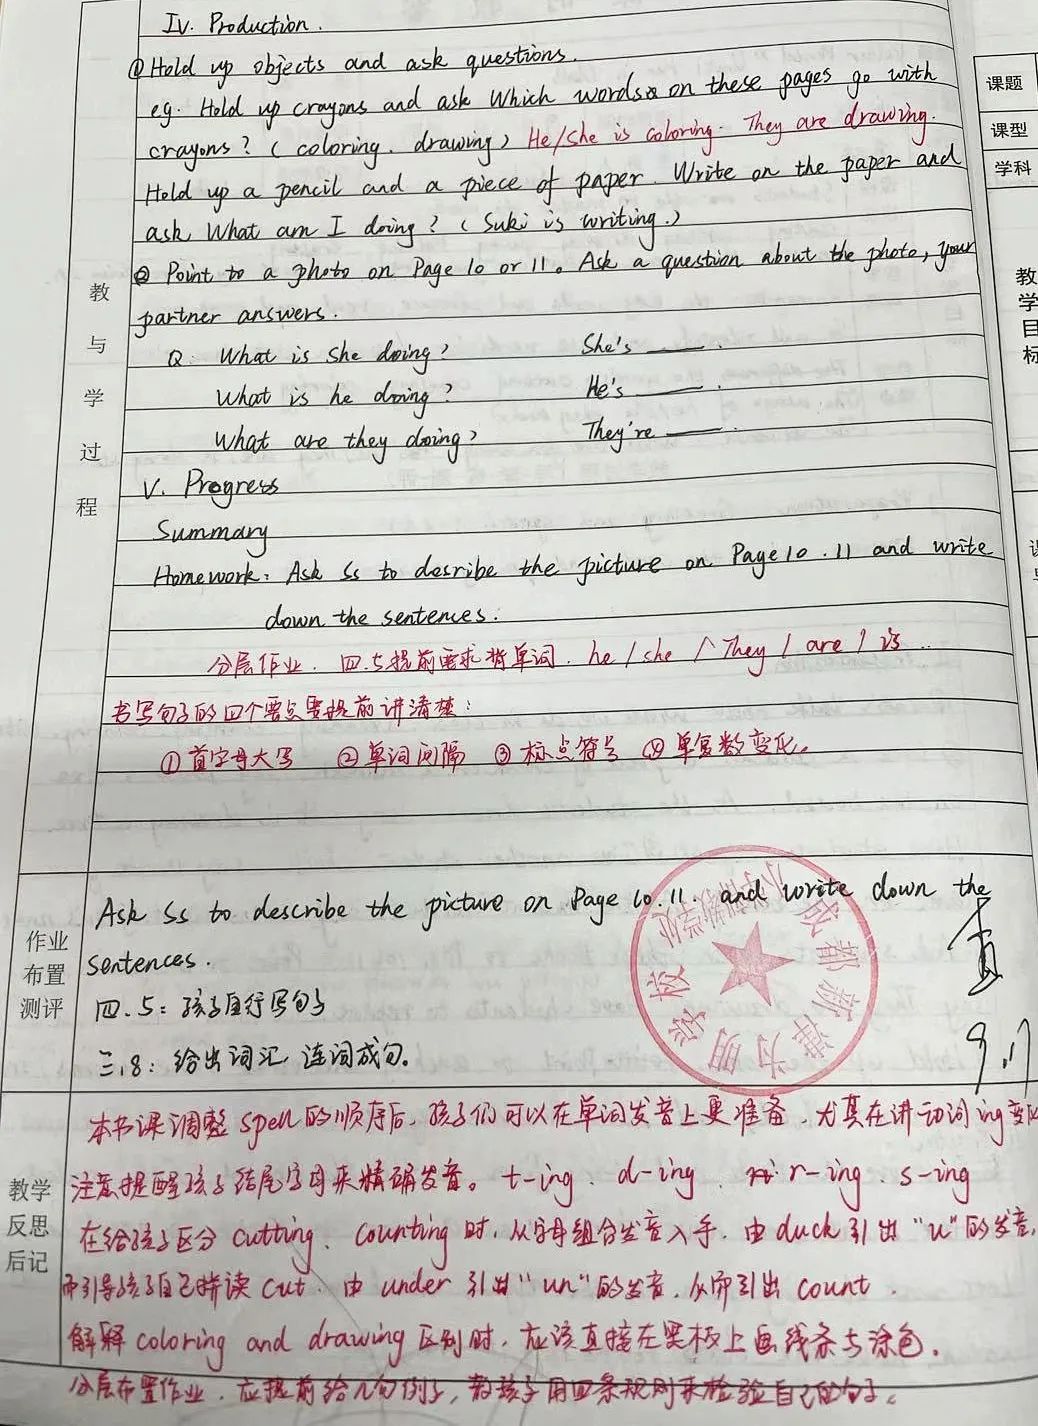 IV. Production.
① Hold up objects and ask questions.
eg. Hold up crayons and ask Which words on these pages go with
crayons? (coloring. drawing) He/She is coloring. They are drawing.
Hold up a pencil and a piece of paper. Write on the paper and
ask What am I doing? (Suki is writing.)
② Point to a photo on Page 10 or 11. Ask a question about the photo, your
partner answers.
Q: What is she doing? She's ____.
What is he doing? He's ____.
What are they doing? They're ____.
V. Progress
Summary
Homework: Ask Ss to desribe the picture on Page 10.11 and write
down the sentences.
分层作业. 四.5提前要求背单词. he / she / They / are / is ..
书写句子的四个要点要提前讲清楚:
①首字母大写 ②单词间隔 ③标点符号 ④单复数变化。
教与学过程
作业布置测评
Ask Ss to describe the picture on Page 10.11. and write down the
sentences.
四.5: 孩子自行写句子
三.8: 给出词汇, 连词成句。
成都新津为明学校
9.17
教学反思后记
本书课调整 spell 的顺序后, 孩子们可以在单词发音上更准备, 尤其在讲动词 ing 变化
注意提醒孩子结尾字母来精确发音。 t-ing. d-ing. r-ing. s-ing
在给孩子区分 cutting. counting 时, 从字母组合发音入手, 由 duck 引出 "u" 的发音,
而引导孩子自己拼读 cut. 由 under 引出 "un" 的发音, 从而引出 count.
解释 coloring and drawing 区别时, 应该直接在黑板上画线条与涂色.
分层布置作业, 应提前给几句例子, 教孩子用四条规则来检验自己的句子。
课题
课型
学科
教学目标